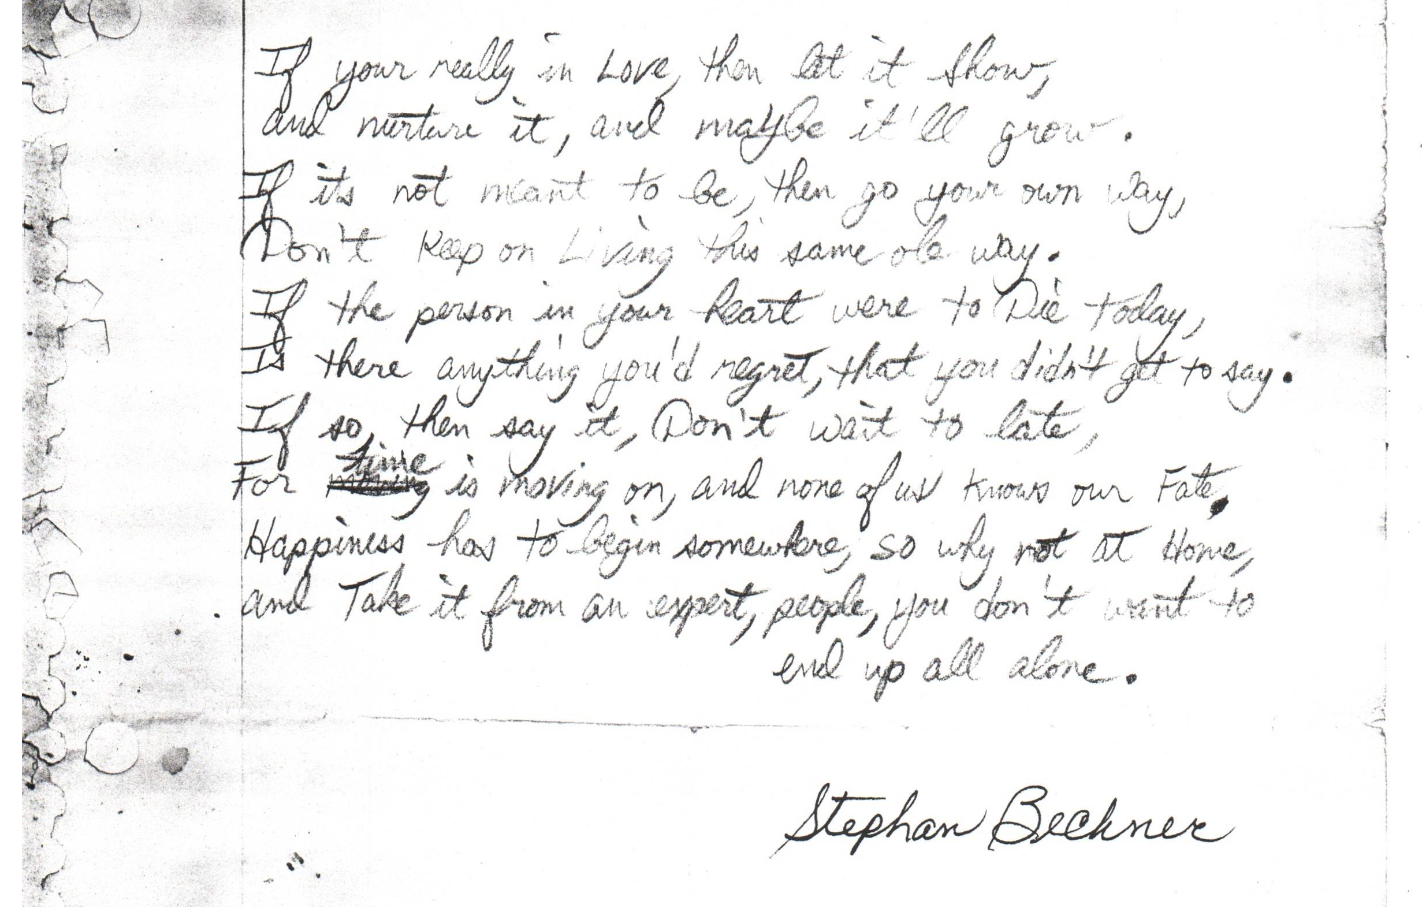 If your really in Love, then let it show,
and nurture it, and maybe it'll grow.
If its not meant to be, then go your own way,
Don't Keep on Living this same ole way.
If the person in your heart were to Die today,
Is there anything you'd regret, that you didn't get to say.
If so, then say it, Don't wait to late,
For time is moving on, and none of us Knows our Fate.
Happiness has to begin somewhere, so why not at Home,
and Take it from an expert, people, you don't want to
end up all alone.
Stephan Beckner